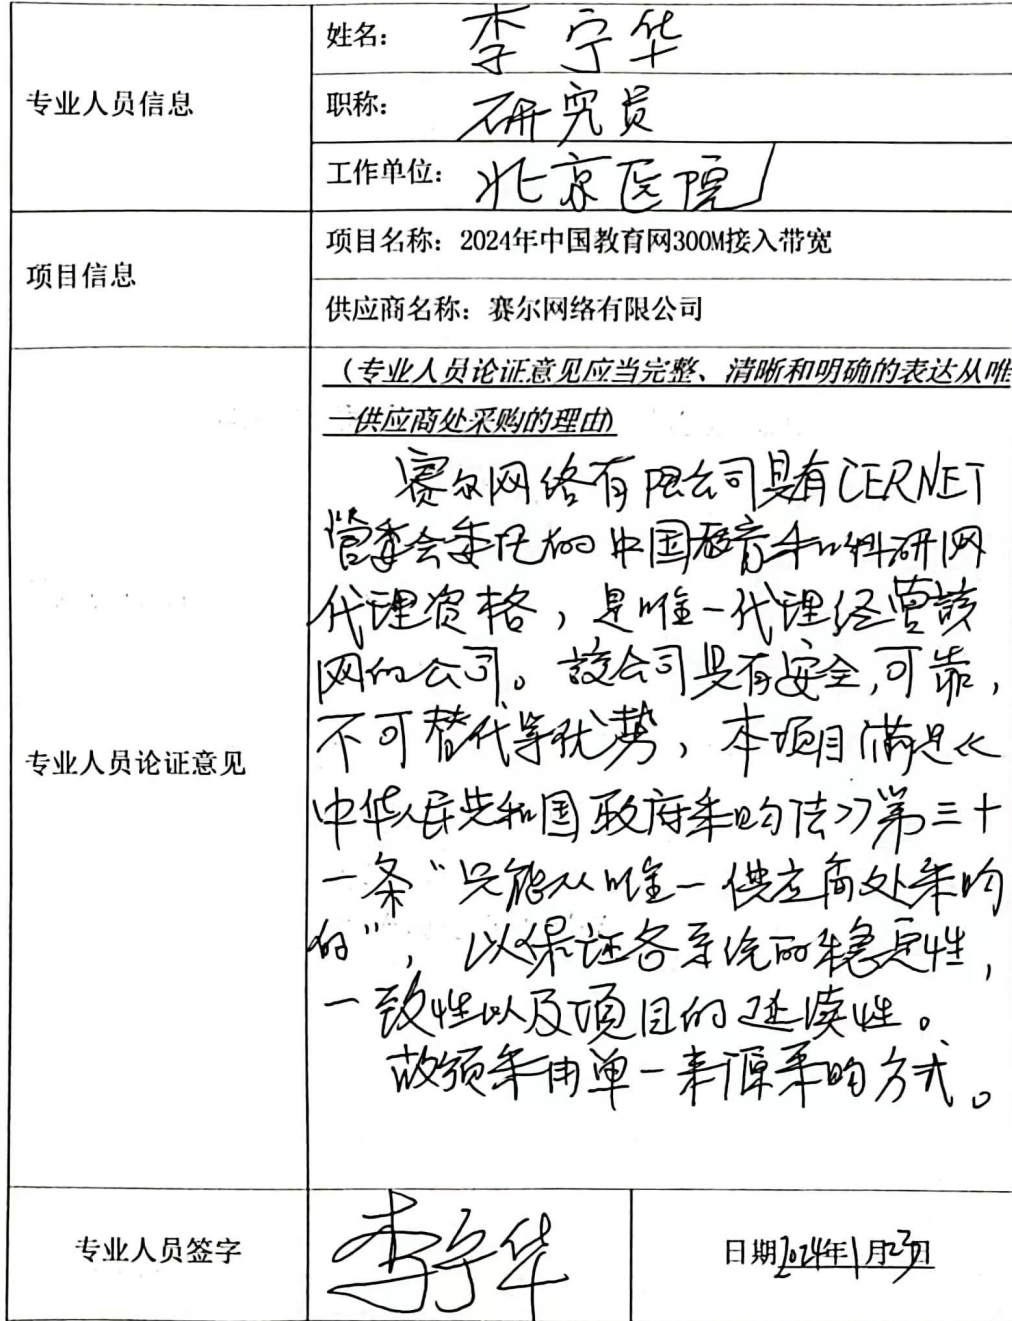 专业人员信息
姓名：李宁华
职称：研究员
工作单位：北京医院
项目信息
项目名称：2024年中国教育网300M接入带宽
供应商名称：赛尔网络有限公司
专业人员论证意见
（专业人员论证意见应当完整、清晰和明确的表达从唯
一供应商处采购的理由）
赛尔网络有限公司具有CERNET
管委会委托的中国教育和科研网
代理资格，是唯一代理经营该
网的公司。该公司具有安全，可靠，
不可替代等优势，本项目满足《
中华人民共和国政府采购法》第三十
一条“只能从唯一供应商处采购
的”，以保证各系统的稳定性，
一致性以及项目的延续性。
故须采用单一来源采购方式。
专业人员签字
李宁华
日期2024年1月23日